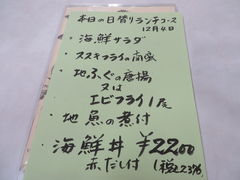 本日の日替りランチコース
12月4日
・海鮮サラダ
・ススキフライの南蛮
・地ふぐの唐揚
又は
エビフライ1尾
・地魚の煮付
・海鮮丼 ¥2200
赤だし付 (税込2376)